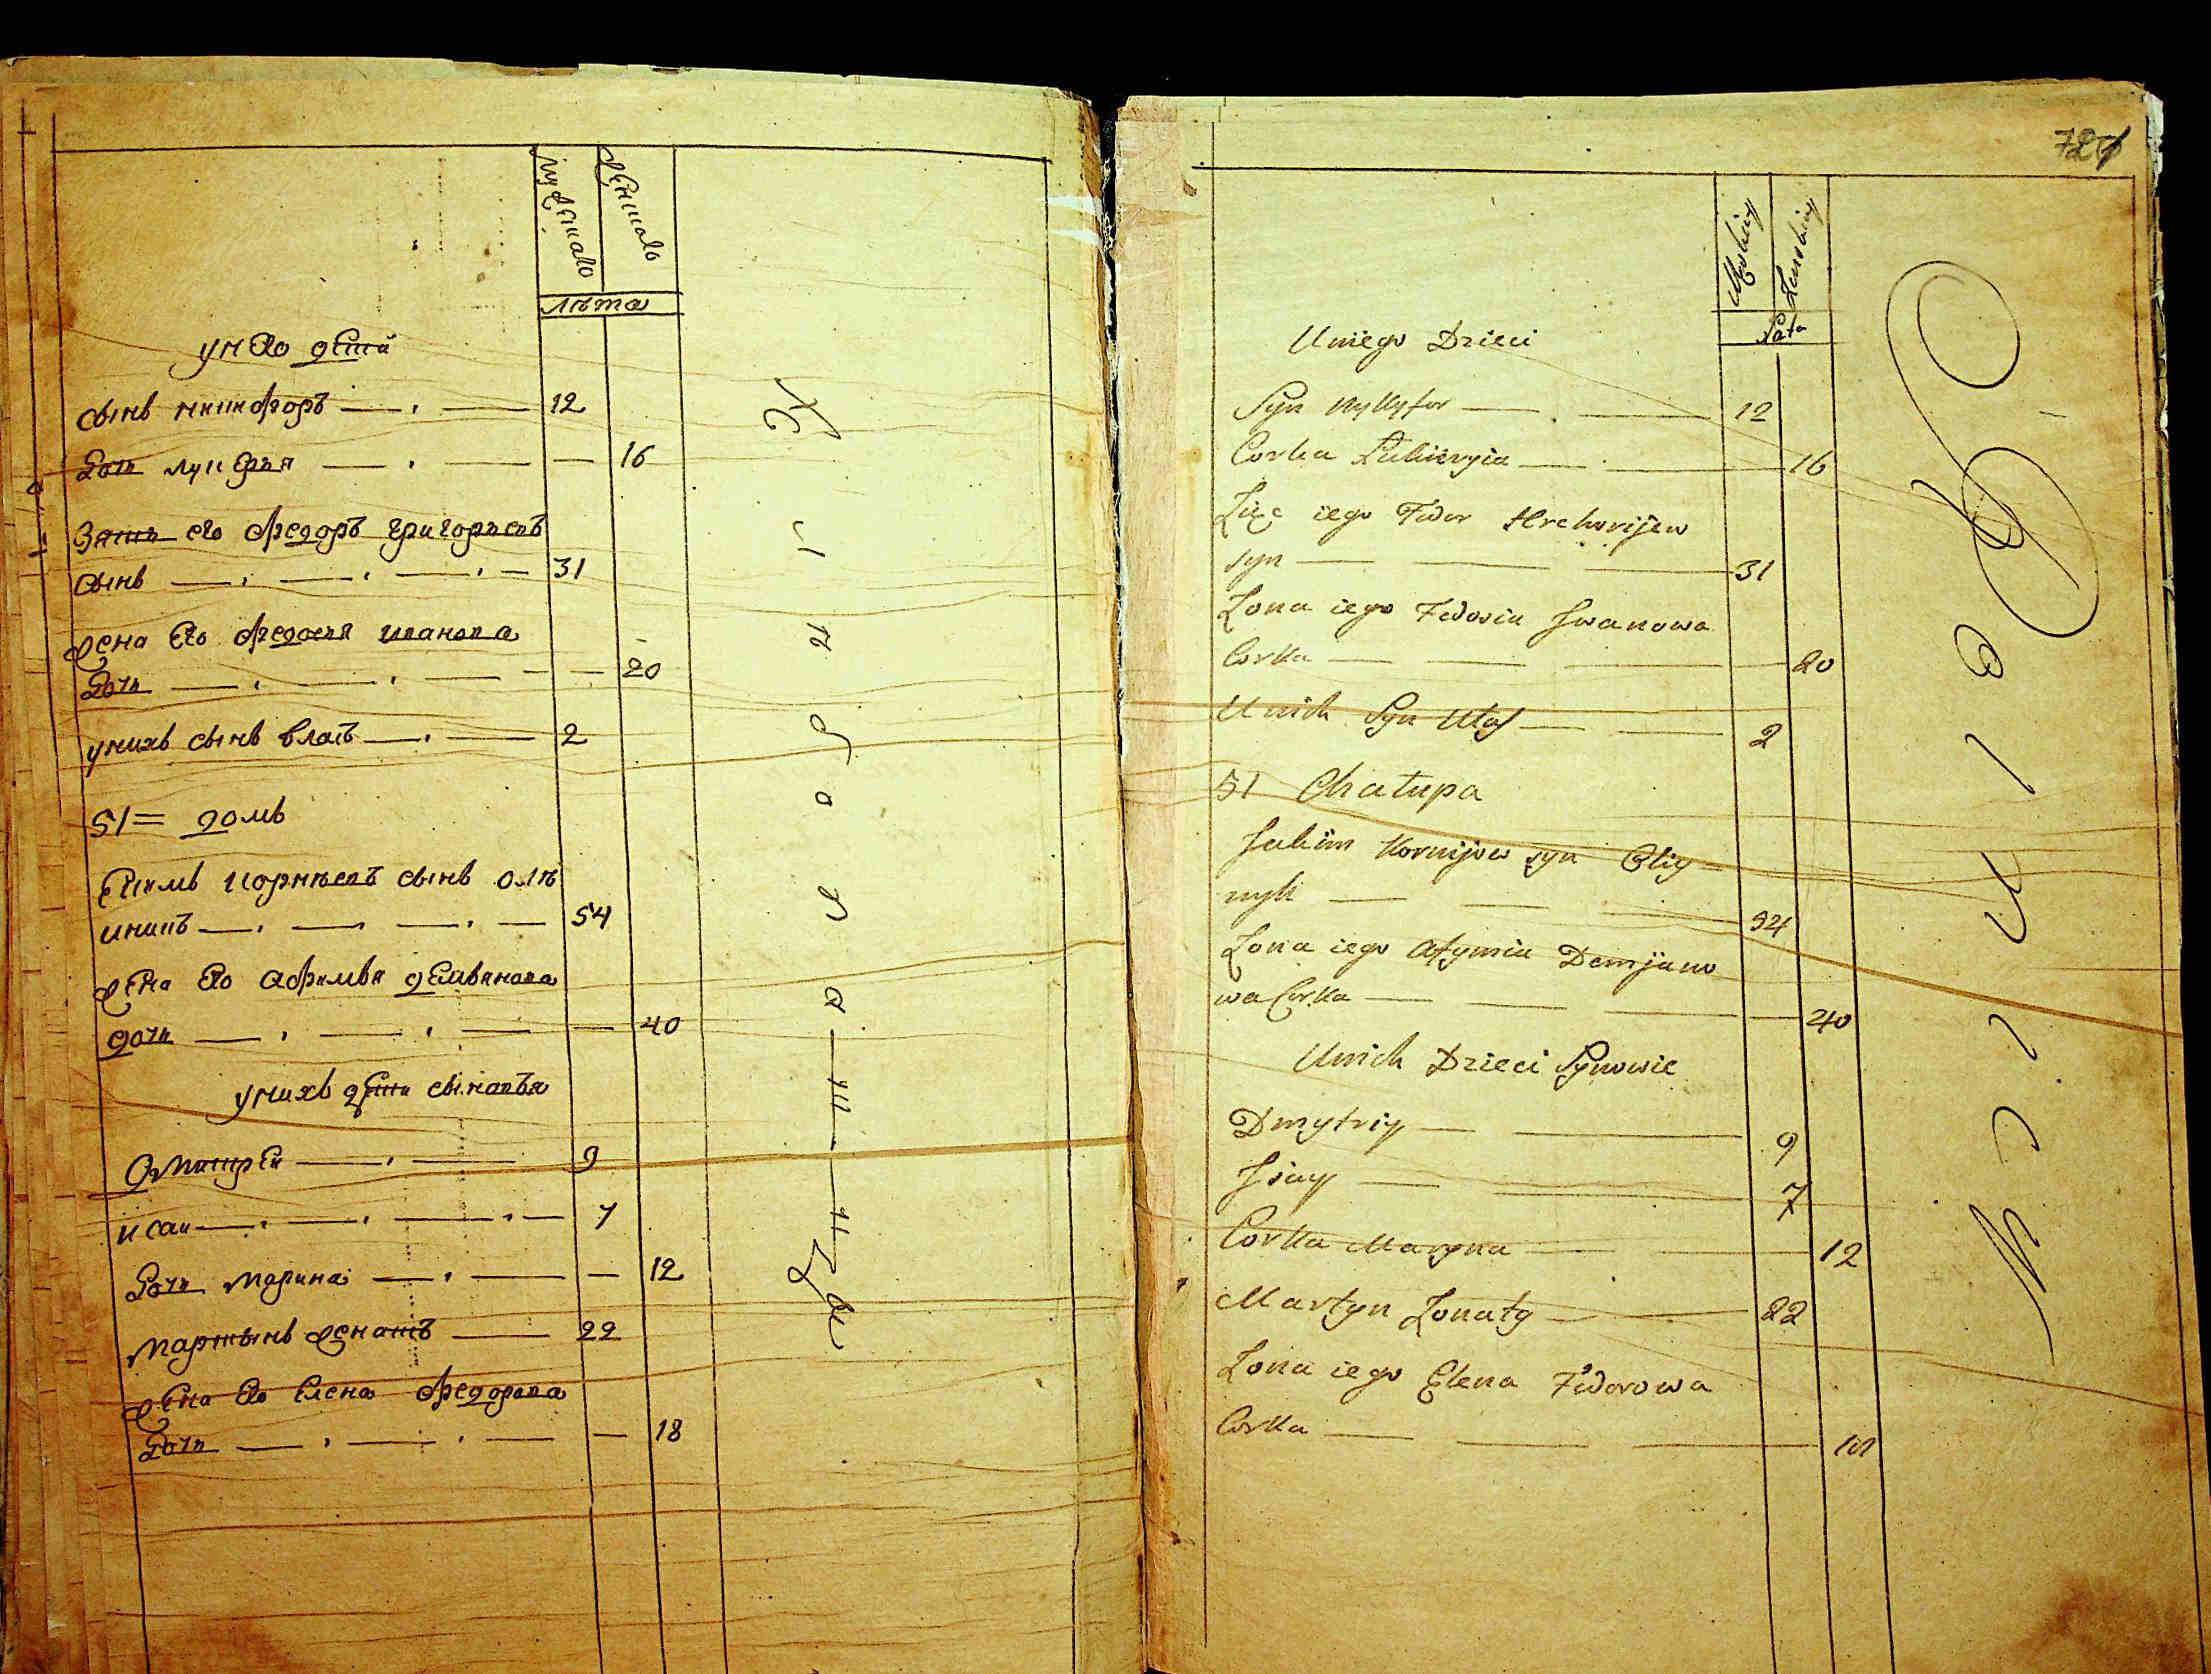 мужеска
женска
лѣта
у него детей
сынъ никифоръ 12
дочь лукерья 16
Зять его федоръ григорьевъ
сынъ 31
жена его федосья иванова
дочь 20
у нихъ сынъ власъ 2
51 = домъ
Екимъ корнѣевъ сынъ олѣ
иникъ 54
жена его афимья демьянова
дочь 40
у нихъ дети сыновья
Дмитреи 9
исаи 7
дочь марина 12
мартынъ женатъ 22
жена его елена федорова
дочь 18
Męskiey
Zenskiey
Lata
U niego Dzieci
Syn Nykyfor 12
Corka Lukieryia 16
Zięc iego Fedor Hrehorijew
syn 31
Zona iego Fedosia Iwanowa
Corka 20
U nich Syn Ułas 2
51 Chałupa
Jakim Kornijow syn Oliy
nyk 54
Zona iego Afymia Demjano
wa Corka 40
U nich Dzieci Synowie
Dmytriy 9
Isay 7
Corka Maryna 12
Martyn Zonaty 22
Zona iego Elena Fedorowa
Corka 18